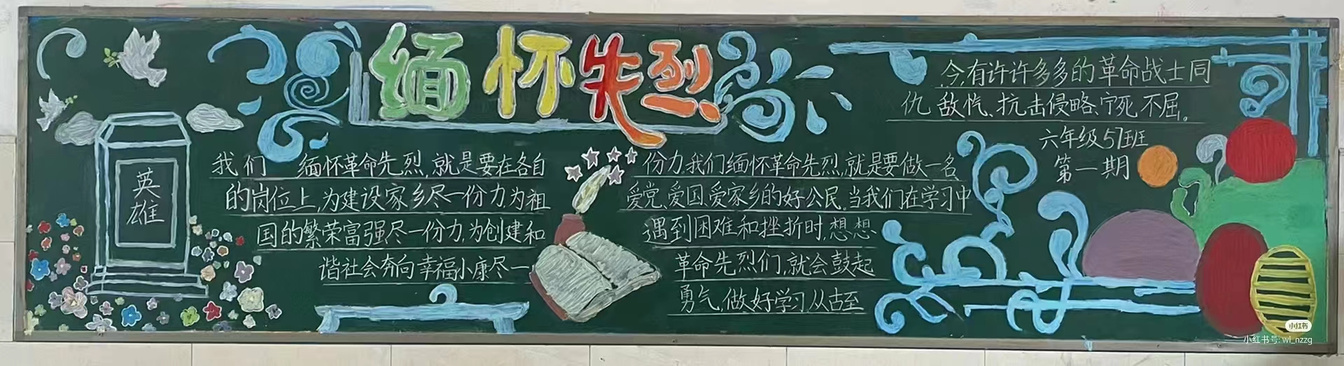 缅怀先烈
英雄
我们 缅怀革命先烈,就是要在各自
的岗位上,为建设家乡尽一份力为祖
国的繁荣富强尽一份力,为创建和
谐社会奔向幸福小康尽一
份力我们缅怀革命先烈,就是要做一名
爱党,爱国,爱家乡的好公民,当我们在学习中
遇到困难和挫折时,想想
革命先烈们,就会鼓起
勇气,做好学习从古至
今,有许许多多的革命战士同
仇敌忾,抗击侵略,宁死不屈。
六年级51班
第一期
小红书
小红书号:wl_nzzg